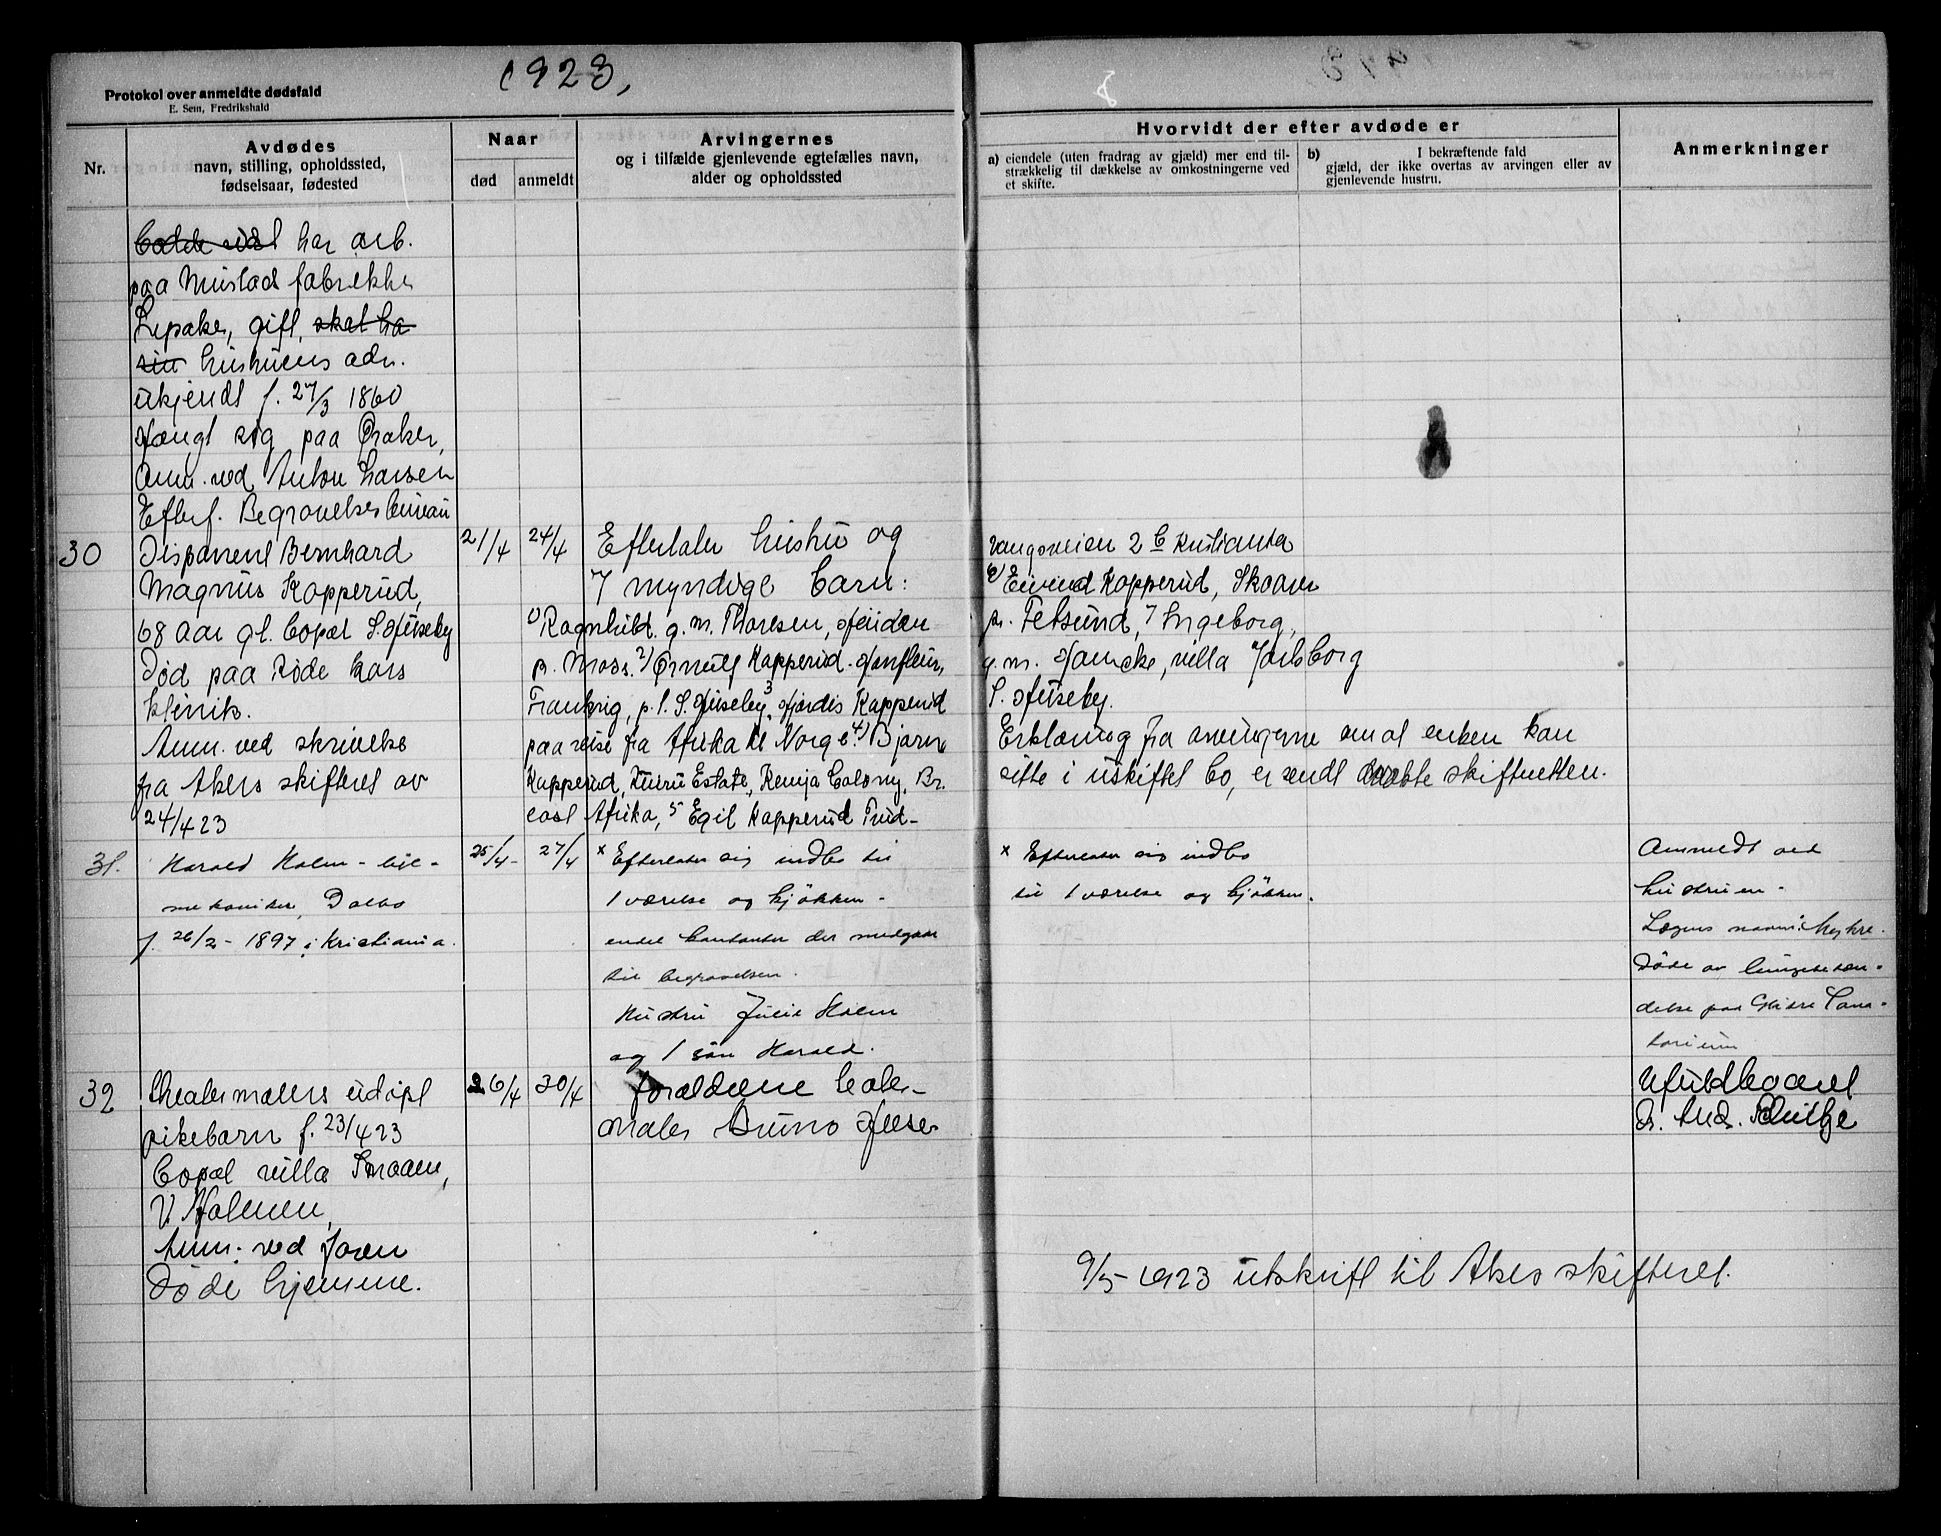 1923,
8
Protokol over anmeldte dødsfald
E. Sem, Fredrikshald
Nr.
Avdødes
navn, stilling, opholdssted,
fødselsaar, fødested
Naar
død
anmeldt
Arvingernes
og i tilfælde gjenlevende egtefælles navn,
alder og opholdssted
Hvorvidt der efter avdøde er
a) eiendele (uten fradrag av gjæld) mer end til-
strækkelig til dækkelse av omkostningerne ved
et skifte.
b) I bekræftende fald
gjæld, der ikke overtas av arvingen eller av
gjenlevende hustru.
Anmerkninger
har arb.
paa Mustad fabrikker
Lysaker, gift, skal ha
sin hustruens adr.
ukjendt f. 27/3 1860
Hængt sig paa Øraker,
Anm. ved Anton Larsen
Efterf. Begravelsesbureau
30
Disponent Bernhard
Magnus Kopperud,
68 aar gl. bopæl S. Huseby
Død paa Røde Kors
klinik.
Anm. ved skrivelse
fra Akers skifteret av
24/4 23
21/4
24/4
Efterlater hustru og
7 myndige barn:
1) Ragnhild. g. m. Thoresen, Høiden
p. Moss. 2) Ørnulf Kopperud. Honfleur,
Frankrig, p. t. S. Huseby, 3 Hjørdis Kopperud
paa reise fra Afrika til Norge 4) Bjarne
Kopperud, Kiuru Estate, Kenja Colony, Br.
east Afrika, 5 Egil Kopperud Trud-
vangsveien 2 b Kristiania
6) Eivind Kopperud, Skaarer
pr. Fetsund, 7 Ingeborg,
g. m. Hancke, villa Jarlsborg
S. Huseby.
Erklæring fra arvingerne om at enken kan
sitte i uskiftet bo, er sendt skifteretten.
31.
Harald Holm - bil-
mekaniker, Dalbo
f. 26/2 - 1897 i Kristiania.
25/4 -
27/4
x Efterlater sig indbo til
1 værelse og kjøkken -
endel kontanter der medgaar
til begravelsen.
Hustru Julie Holm
og 1 søn Harald.
x Efterlater sig indbo
til 1 værelse og kjøkken.
Anmeldt ved
hustruen -
Lægens navn: Myhre.
Døde av lungebetæn-
delse paa Glitre Sana-
torium
32
Theatermalers udøpt
pikebarn f. 23/4 23
bopæl villa Smaaen,
V. Holmen,
Anm. ved faren
Døde hjemme.
26/4
30/4
forældrene teater-
maler Bruno
Ufuldbaaret
Dr. And.
9/5 - 1923 utskrift til Akers skifteret.